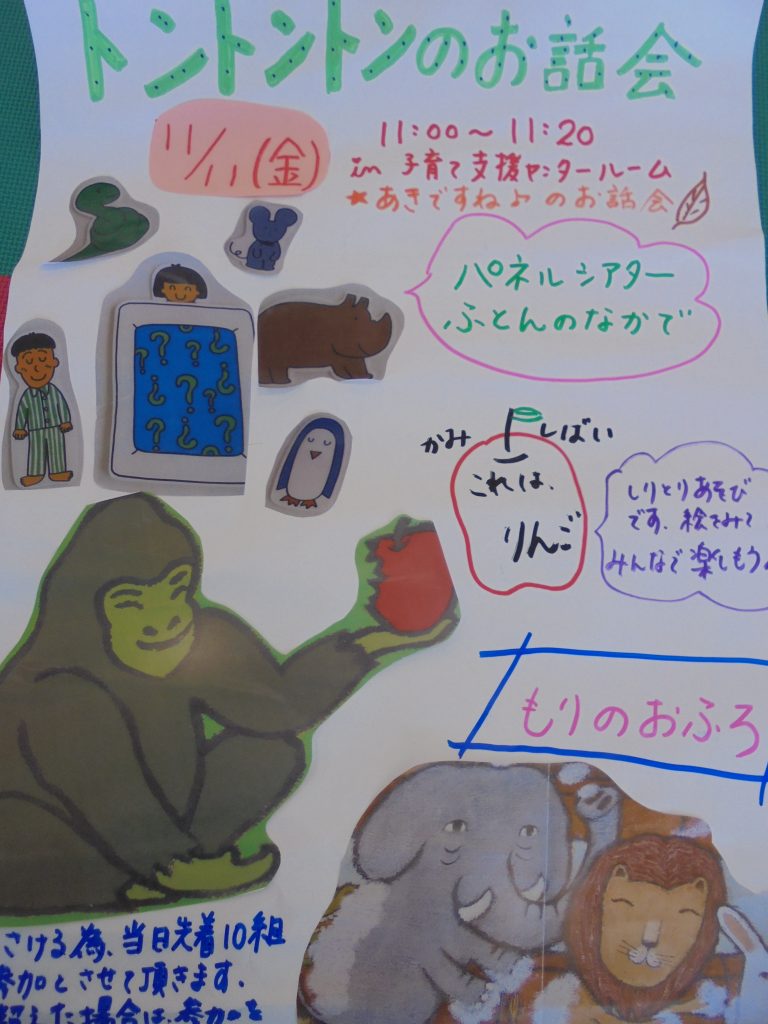 トントントンのお話会
11/11(金)
11:00～11:20
in 子育て支援センタールーム
★あきですね♪のお話会
パネルシアター
ふとんのなかで
かみしばい
これは、
りんご
しりとりあそび
です。絵をみて
みんなで楽しもう
もりのおふろ
さける為、当日先着10組
参加とさせて頂きます。
超えた場合は、参加を